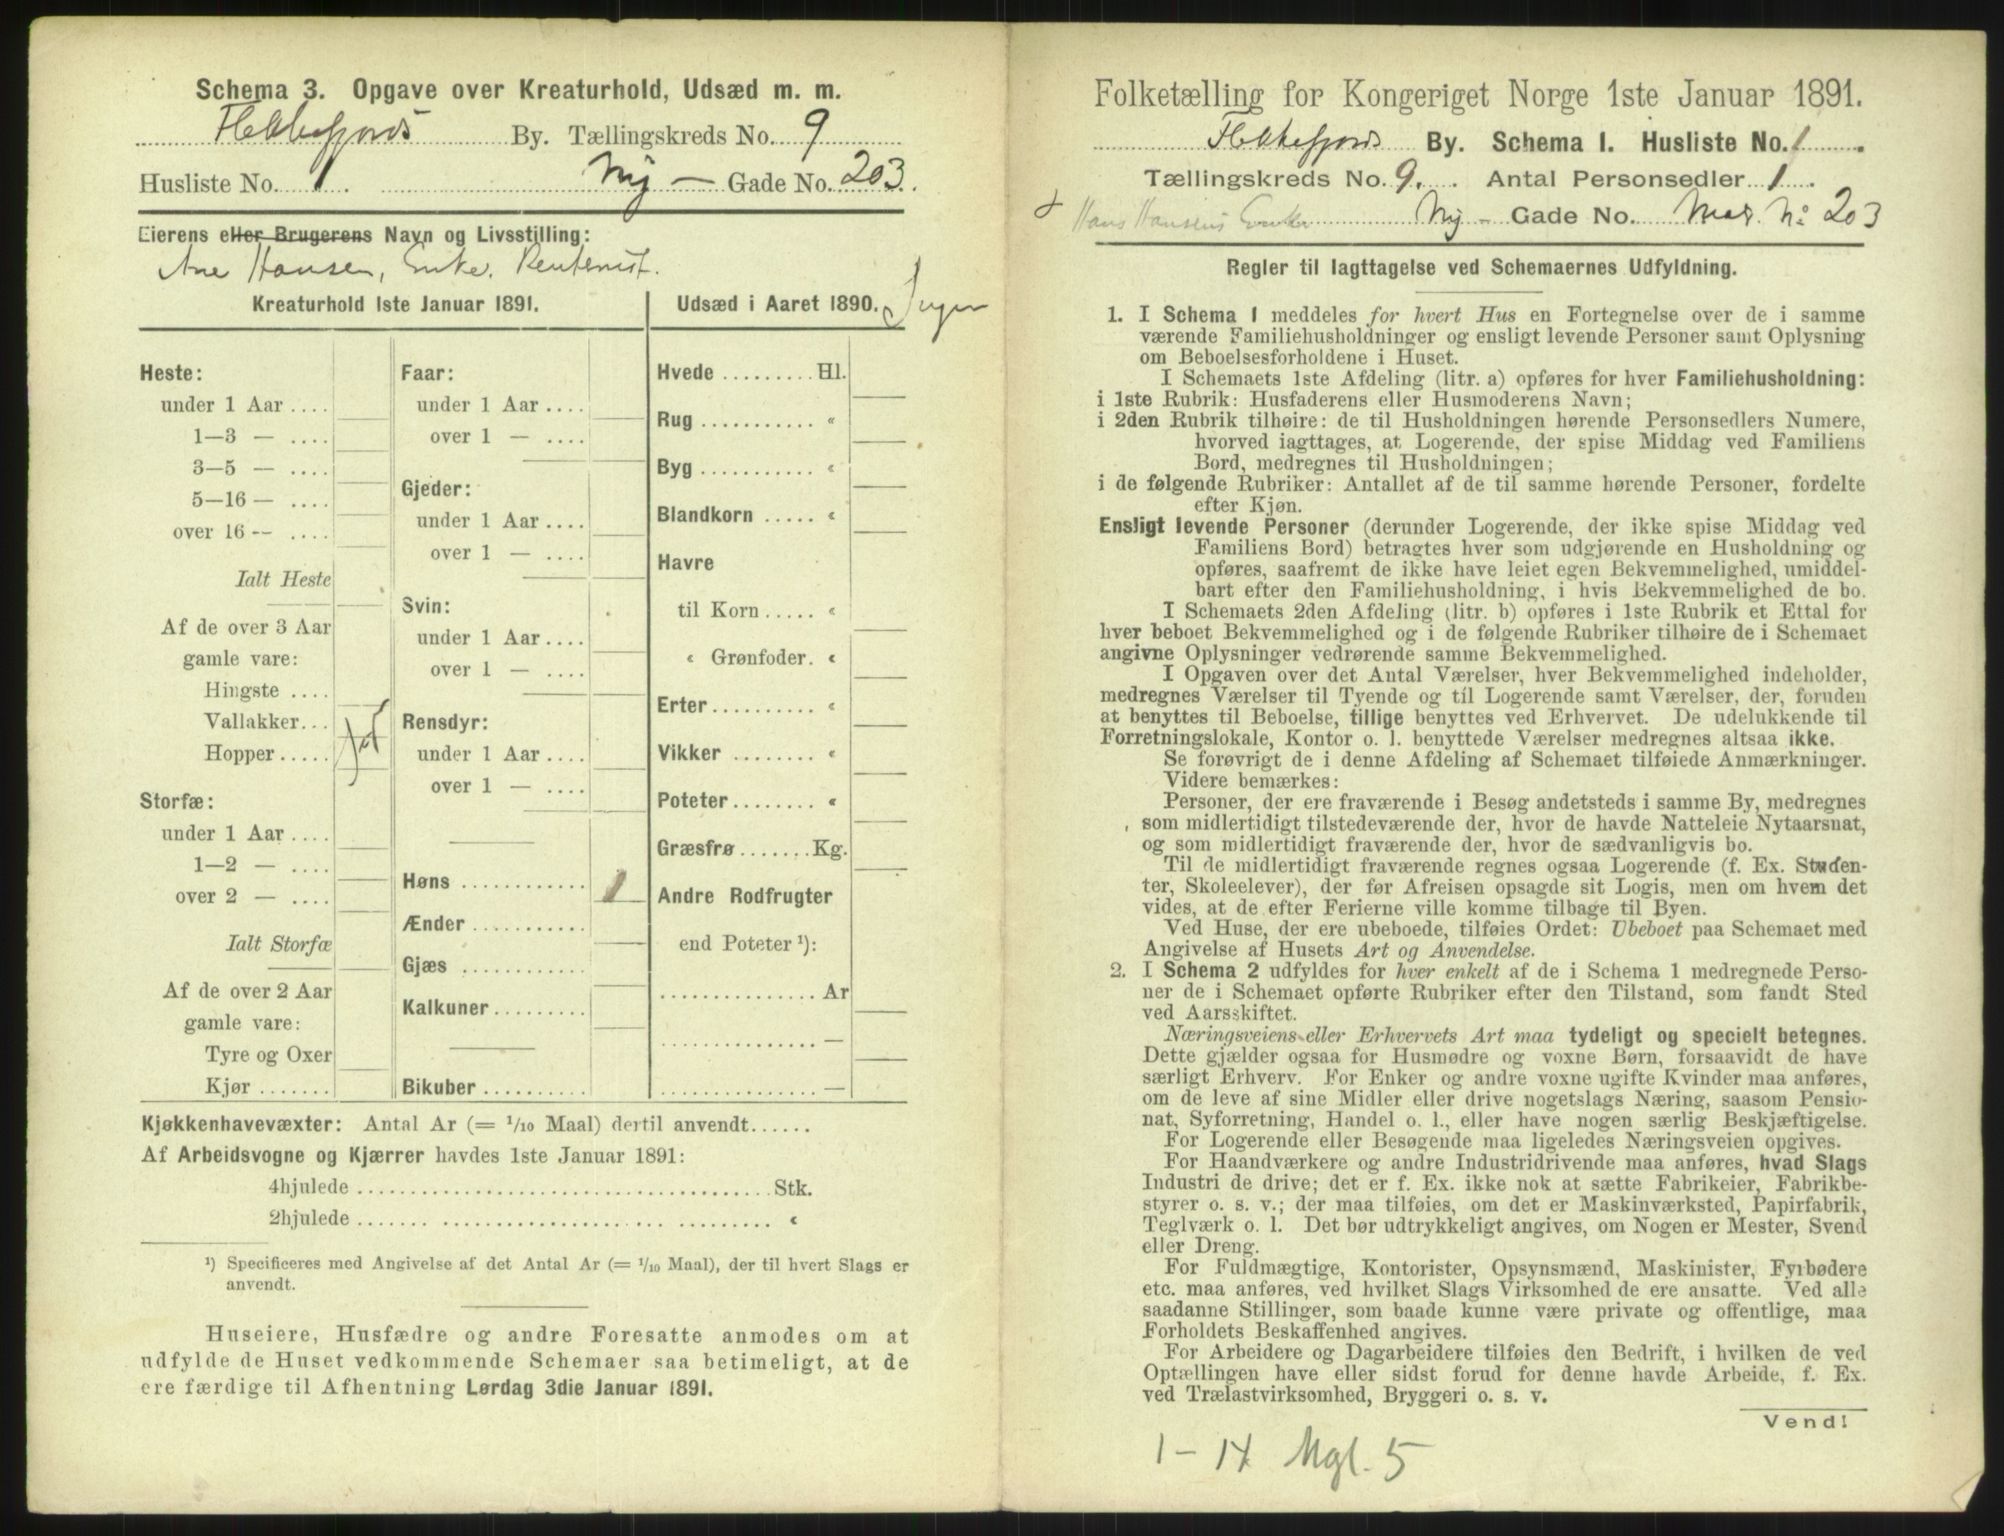 Schema 3. Opgave over Kreaturhold, Udsæd m. m.
Flekkefjords By. Tællingskreds No. 9
Husliste No. 1. Ny — Gade No. 203.
Eierens eller Brugerens Navn og Livsstilling:
Ane Hansen, Enke. Rentenist.
Kreaturhold 1ste Januar 1891.
Heste:
under 1 Aar ....
1—3 — ....
3—5 — ....
5—16 — ....
over 16 -- ....
Ialt Heste
Af de over 3 Aar
gamle vare:
Hingste ....
Vallakker...
Hopper.....
Storfæ:
under 1 Aar ....
1—2 — ....
over 2 — ....
Ialt Storfæ
Af de over 2 Aar
gamle vare:
Tyre og Oxer
Kjør .......
Faar:
under 1 Aar ....
over 1 — ....
Gjeder:
under 1 Aar ....
over 1 — ....
Svin:
under 1 Aar ....
over 1 — ....
Rensdyr:
under 1 Aar ....
over 1 — ....
Høns ............
Ænder...........
Gjæs ............
Kalkuner.........
Bikuber ..........
Udsæd i Aaret 1890. Ingen
Hvede .........Hl.
Rug ........... «
Byg ........... «
Blandkorn ..... «
Havre
til Korn ..... «
« Grønfoder. «
Erter.......... «
Vikker ........ «
Poteter........ «
Græsfrø .......Kg.
Andre Rodfrugter
end Poteter ¹):
...............Ar
............... —
............... —
Kjøkkenhavevæxter: Antal Ar (= 1/10 Maal) dertil anvendt......
Af Arbeidsvogne og Kjærrer havdes 1ste Januar 1891:
4hjulede ........................................Stk.
2hjulede ....... ..................... ......... «
¹) Specificeres med Angivelse af det Antal Ar (= 1/10 Maal), der til hvert Slags er
anvendt.
Huseiere, Husfædre og andre Foresatte anmodes om at
udfylde de Huset vedkommende Schemaer saa betimeligt, at de
ere færdige til Afhentning Lørdag 3die Januar 1891.
Folketælling for Kongeriget Norge 1ste Januar 1891.
Flekkefjords By. Schema I. Husliste No. 1
Tællingskreds No. 9. Antal Personsedler 1
Hans Hansens Enke Ny — Gade No. Matr. No 203
Regler til Iagttagelse ved Schemaernes Udfyldning.
1. I Schema 1 meddeles for hvert Hus en Fortegnelse over de i samme
værende Familiehusholdninger og ensligt levende Personer samt Oplysning
om Beboelsesforholdene i Huset.
I Schemaets 1ste Afdeling (litr. a) opføres for hver Familiehusholdning:
i 1ste Rubrik: Husfaderens eller Husmoderens Navn;
i 2den Rubrik tilhøire: de til Husholdningen hørende Personsedlers Numere,
hvorved iagttages, at Logerende, der spise Middag ved Familiens
Bord, medregnes til Husholdningen;
i de følgende Rubriker: Antallet af de til samme hørende Personer, fordelte
efter Kjøn.
Ensligt levende Personer (derunder Logerende, der ikke spise Middag ved
Familiens Bord) betragtes hver som udgjørende en Husholdning og
opføres, saafremt de ikke have leiet egen Bekvemmelighed, umiddel-
bart efter den Familiehusholdning, i hvis Bekvemmelighed de bo.
I Schemaets 2den Afdeling (litr. b) opføres i 1ste Rubrik et Ettal for
hver beboet Bekvemmelighed og i de følgende Rubriker tilhøire de i Schemaet
angivne Oplysninger vedrørende samme Bekvemmelighed.
I Opgaven over det Antal Værelser, hver Bekvemmelighed indeholder,
medregnes Værelser til Tyende og til Logerende samt Værelser, der, foruden
at benyttes til Beboelse, tillige benyttes ved Erhvervet. De udelukkende til
Forretningslokale, Kontor o. l. benyttede Værelser medregnes altsaa ikke.
Se forøvrigt de i denne Afdeling af Schemaet tilføiede Anmærkninger.
Videre bemærkes:
Personer, der ere fraværende i Besøg andetsteds i samme By, medregnes
som midlertidigt tilstedeværende der, hvor de havde Natteleie Nytaarsnat,
og som midlertidigt fraværende der, hvor de sædvanligvis bo.
Til de midlertidigt fraværende regnes ogsaa Logerende (f. Ex. Studen-
ter, Skoleelever), der før Afreisen opsagde sit Logis, men om hvem det
vides, at de efter Ferierne ville komme tilbage til Byen.
Ved Huse, der ere ubeboede, tilføies Ordet: Ubeboet paa Schemaet med
Angivelse af Husets Art og Anvendelse.
2. I Schema 2 udfyldes for hver enkelt af de i Schema 1 medregnede Perso-
ner de i Schemaet opførte Rubriker efter den Tilstand, som fandt Sted
ved Aarsskiftet.
Næringsveiens eller Erhvervets Art maa tydeligt og specielt betegnes.
Dette gjælder ogsaa for Husmødre og voxne Børn, forsaavidt de have
særligt Erhverv. For Enker og andre voxne ugifte Kvinder maa anføres,
om de leve af sine Midler eller drive nogetslags Næring, saasom Pensio-
nat, Syforretning, Handel o. l., eller have nogen særlig Beskjæftigelse.
For Logerende eller Besøgende maa ligeledes Næringsveien opgives.
For Haandværkere og andre Industridrivende maa anføres, hvad Slags
Industri de drive; det er f. Ex. ikke nok at sætte Fabrikeier, Fabrikbe-
styrer o. s. v.; der maa tilføies, om det er Maskinværksted, Papirfabrik,
Teglværk o. l. Det bør udtrykkeligt angives, om Nogen er Mester, Svend
eller Dreng.
For Fuldmægtige, Kontorister, Opsynsmænd, Maskinister, Fyrbødere
etc. maa anføres, ved hvilket Slags Virksomhed de ere ansatte. Ved alle
saadanne Stillinger, som baade kunne være private og offentlige, maa
Forholdets Beskaffenhed angives.
For Arbeidere og Dagarbeidere tilføies den Bedrift, i hvilken de ved
Optællingen have eller sidst forud for denne havde Arbeide, f. Ex.
ved Trælastvirksomhed, Bryggeri o. s. v.
Vend!
1 – 14 Mgl. 5